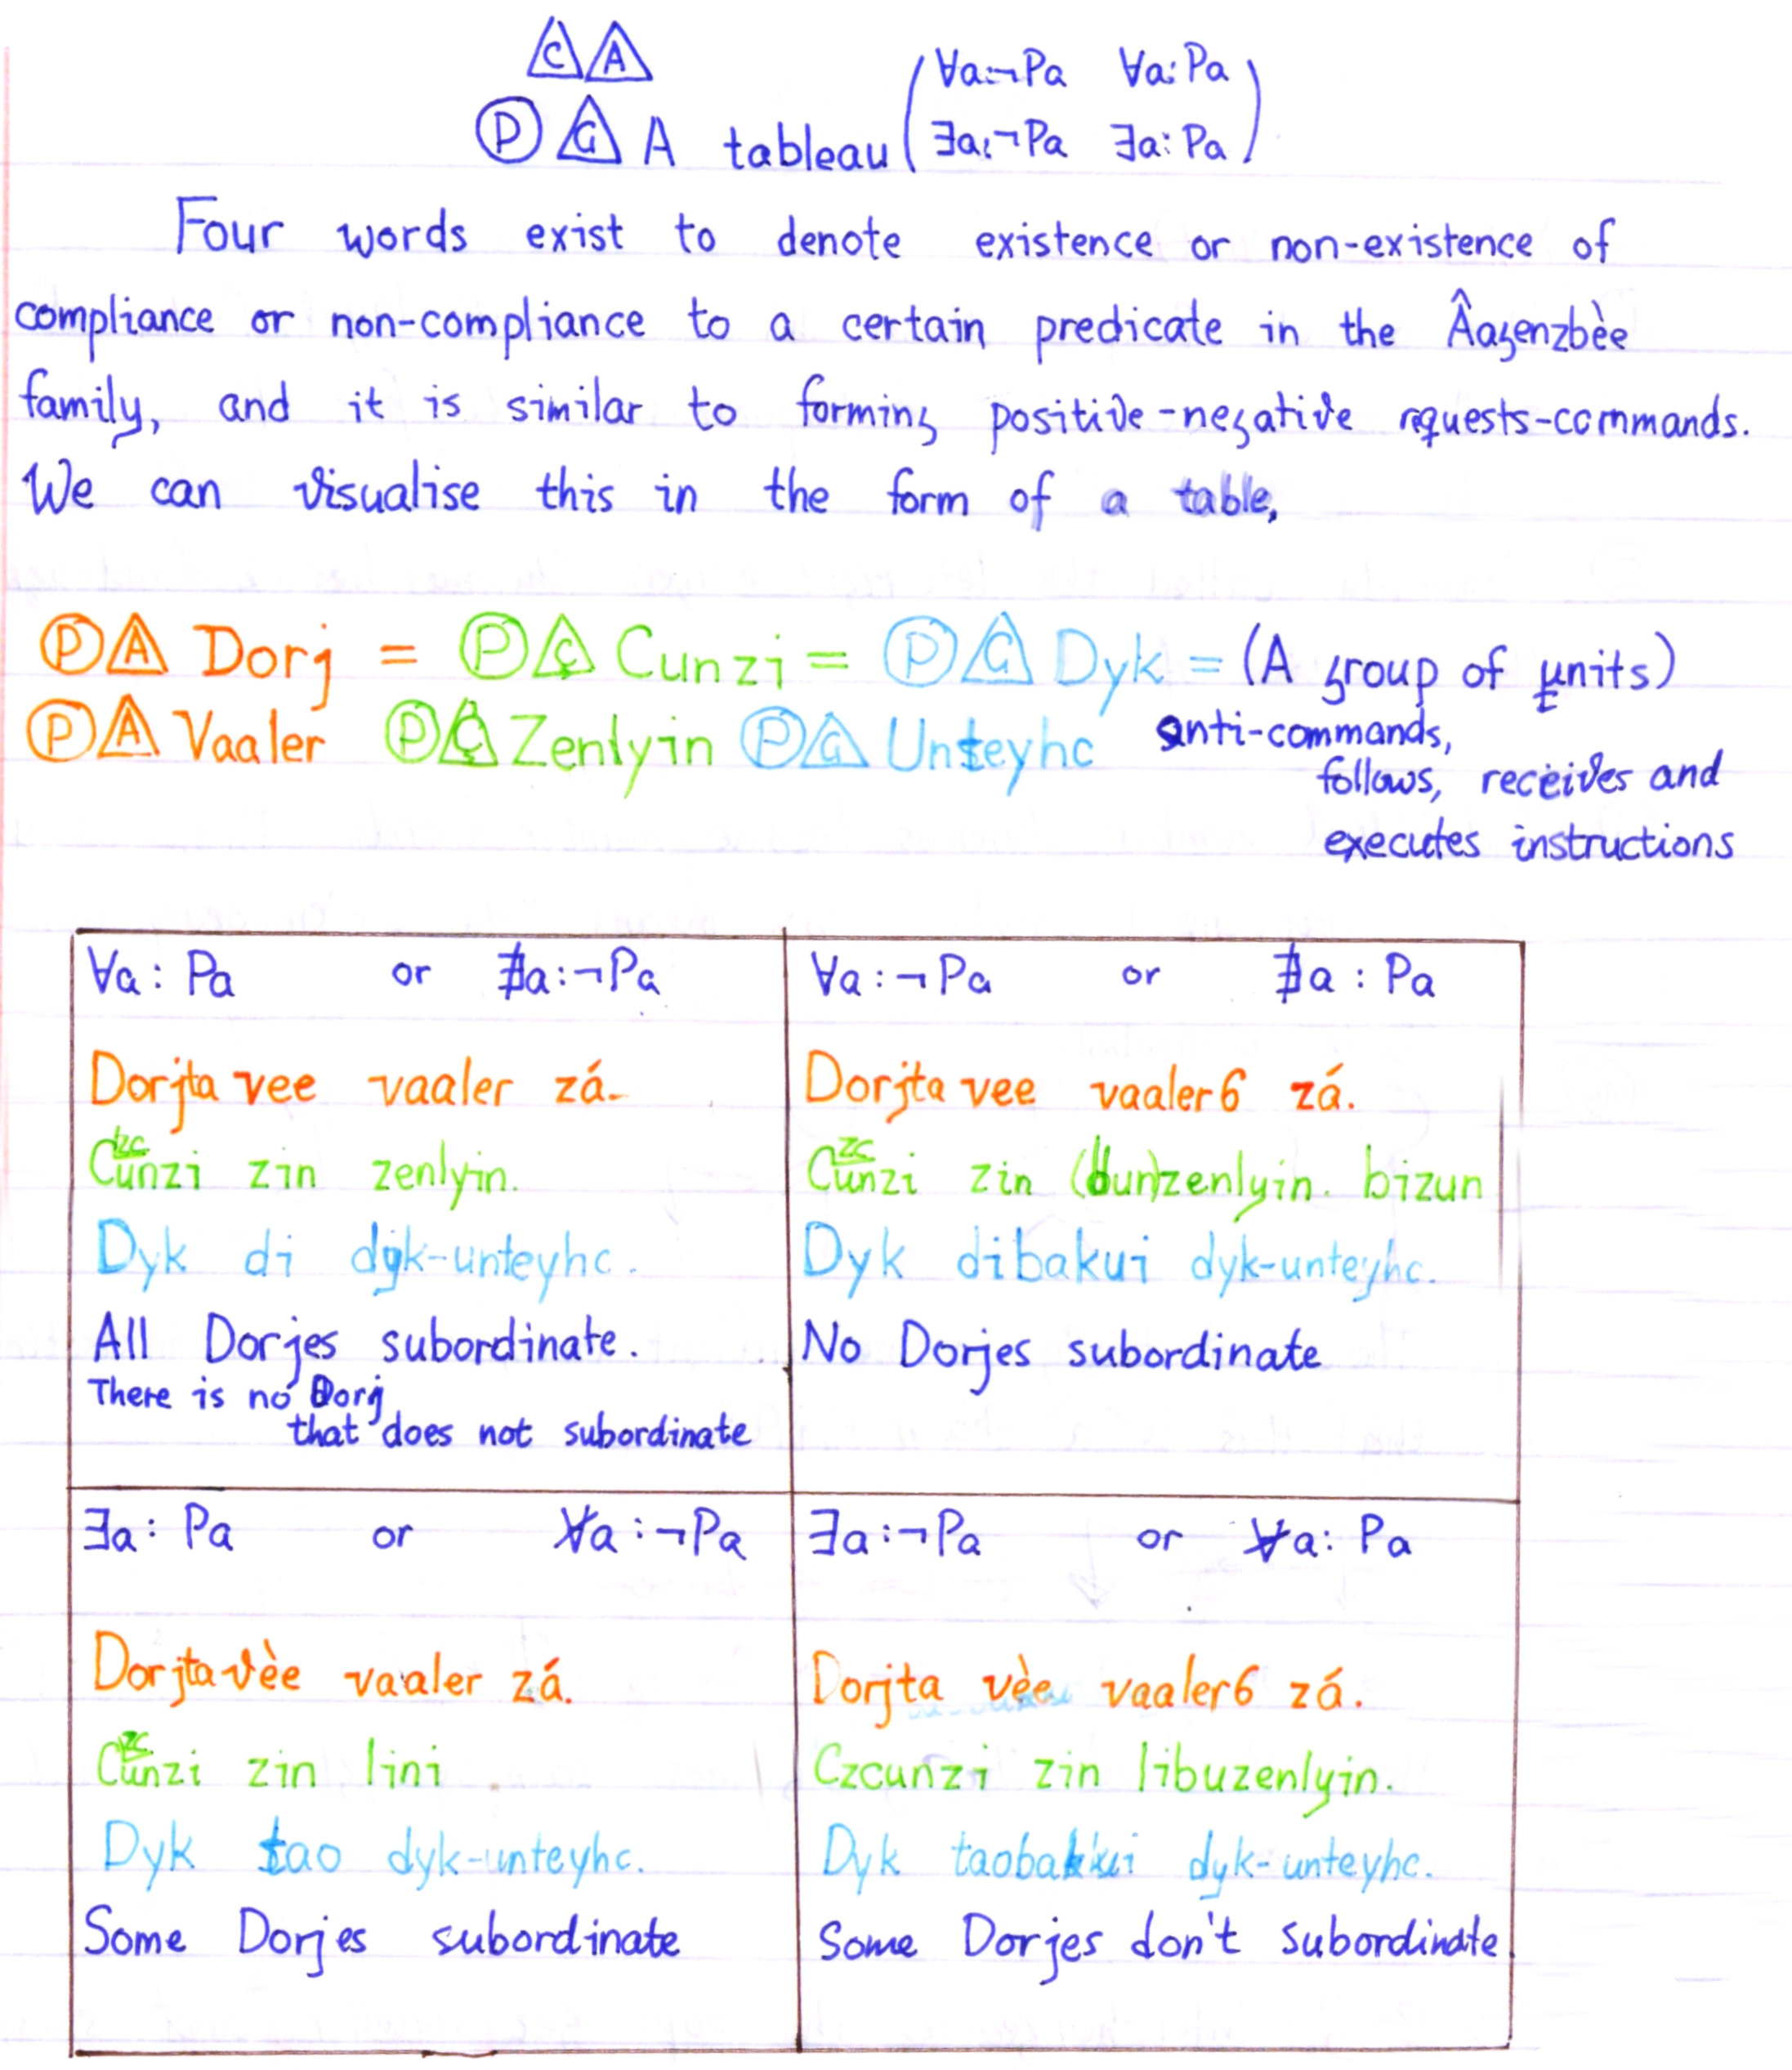 C A
P G A tableau ( ∀a:¬Pa ∀a:Pa
∃a:¬Pa ∃a:Pa )
Four words exist to denote existence or non-existence of
compliance or non-compliance to a certain predicate in the Âagenzbèe
family, and it is similar to forming positive-negative requests-commands.
We can visualise this in the form of a table,
P A Dorj = P Ç Cunzi = P G Dyk = (A group of units)
P A Vaaler P Ç Zenlyin P G Unteyhc anti-commands,
follows, receives and
executes instructions
∀a : Pa or ∄a:¬Pa
Dorjta vee vaaler zá.
Czcunzi zin zenlyin.
Dyk di dyk-unteyhc.
All Dorjes subordinate.
There is no Dorj
that does not subordinate
∀a:¬Pa or ∄a : Pa
Dorjta vee vaaler6 zá.
Czcunzi zin (bun)zenlyin. bizun
Dyk dibakui dyk-unteyhc.
No Dorjes subordinate
∃a: Pa or ∀̸a:¬Pa
Dorjta vèe vaaler zá.
Czcunzi zin lini .
Dyk tao dyk-unteyhc.
Some Dorjes subordinate
∃a:¬Pa or ∀̸a: Pa
Dorjta vèe vaaler6 zá.
Czcunzi zin libuzenlyin.
Dyk taobakui dyk-unteyhc.
Some Dorjes don't subordinate